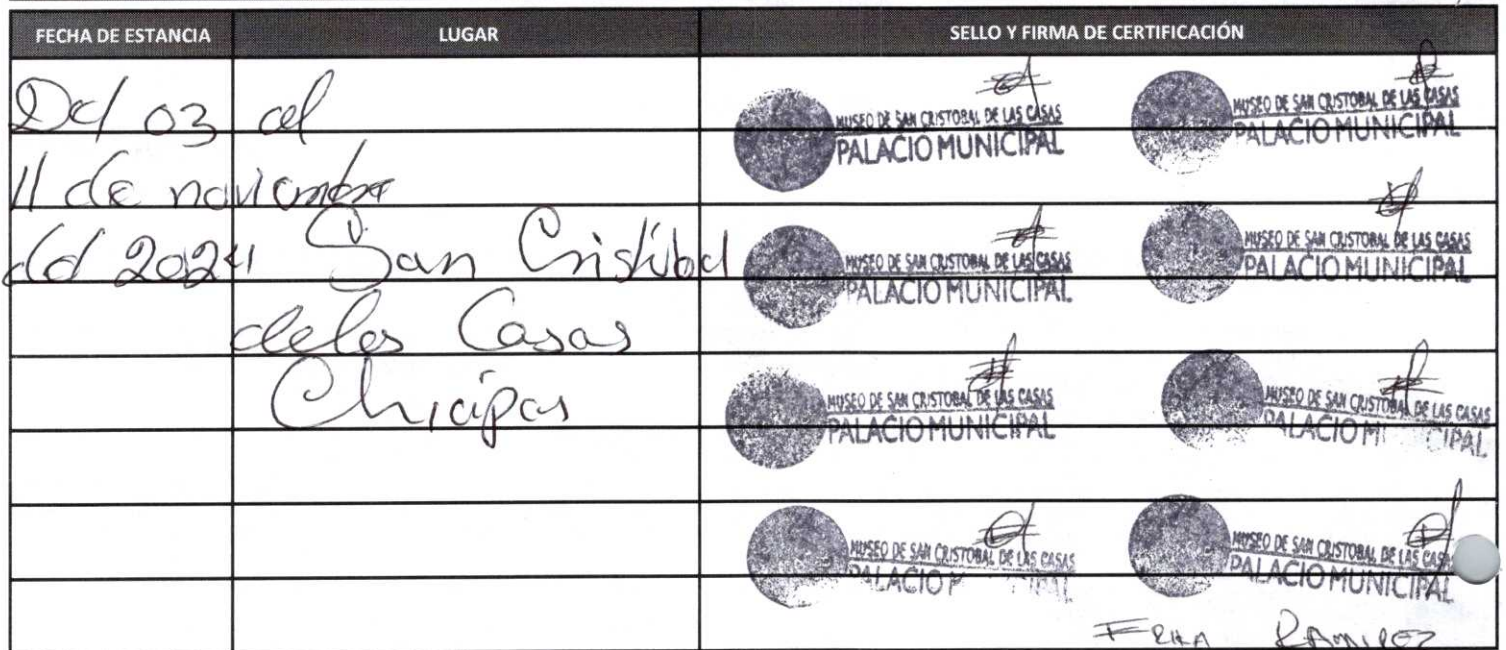 FECHA DE ESTANCIA
LUGAR
SELLO Y FIRMA DE CERTIFICACIÓN
Del 03 al
11 de noviembre
del 2024
San Cristóbal
de las Casas
Chiapas
MUSEO DE SAN CRISTOBAL DE LAS CASAS
PALACIO MUNICIPAL
MUSEO DE SAN CRISTOBAL DE LAS CASAS
PALACIO MUNICIPAL
MUSEO DE SAN CRISTOBAL DE LAS CASAS
PALACIO MUNICIPAL
MUSEO DE SAN CRISTOBAL DE LAS CASAS
PALACIO MUNICIPAL
MUSEO DE SAN CRISTOBAL DE LAS CASAS
PALACIO MUNICIPAL
MUSEO DE SAN CRISTOBAL DE LAS CASAS
PALACIO M CIPAL
MUSEO DE SAN CRISTOBAL DE LAS CASAS
PALACIO M IPAL
MUSEO DE SAN CRISTOBAL DE LAS CASAS
PALACIO MUNICIPAL
ERIKA RAMIREZ